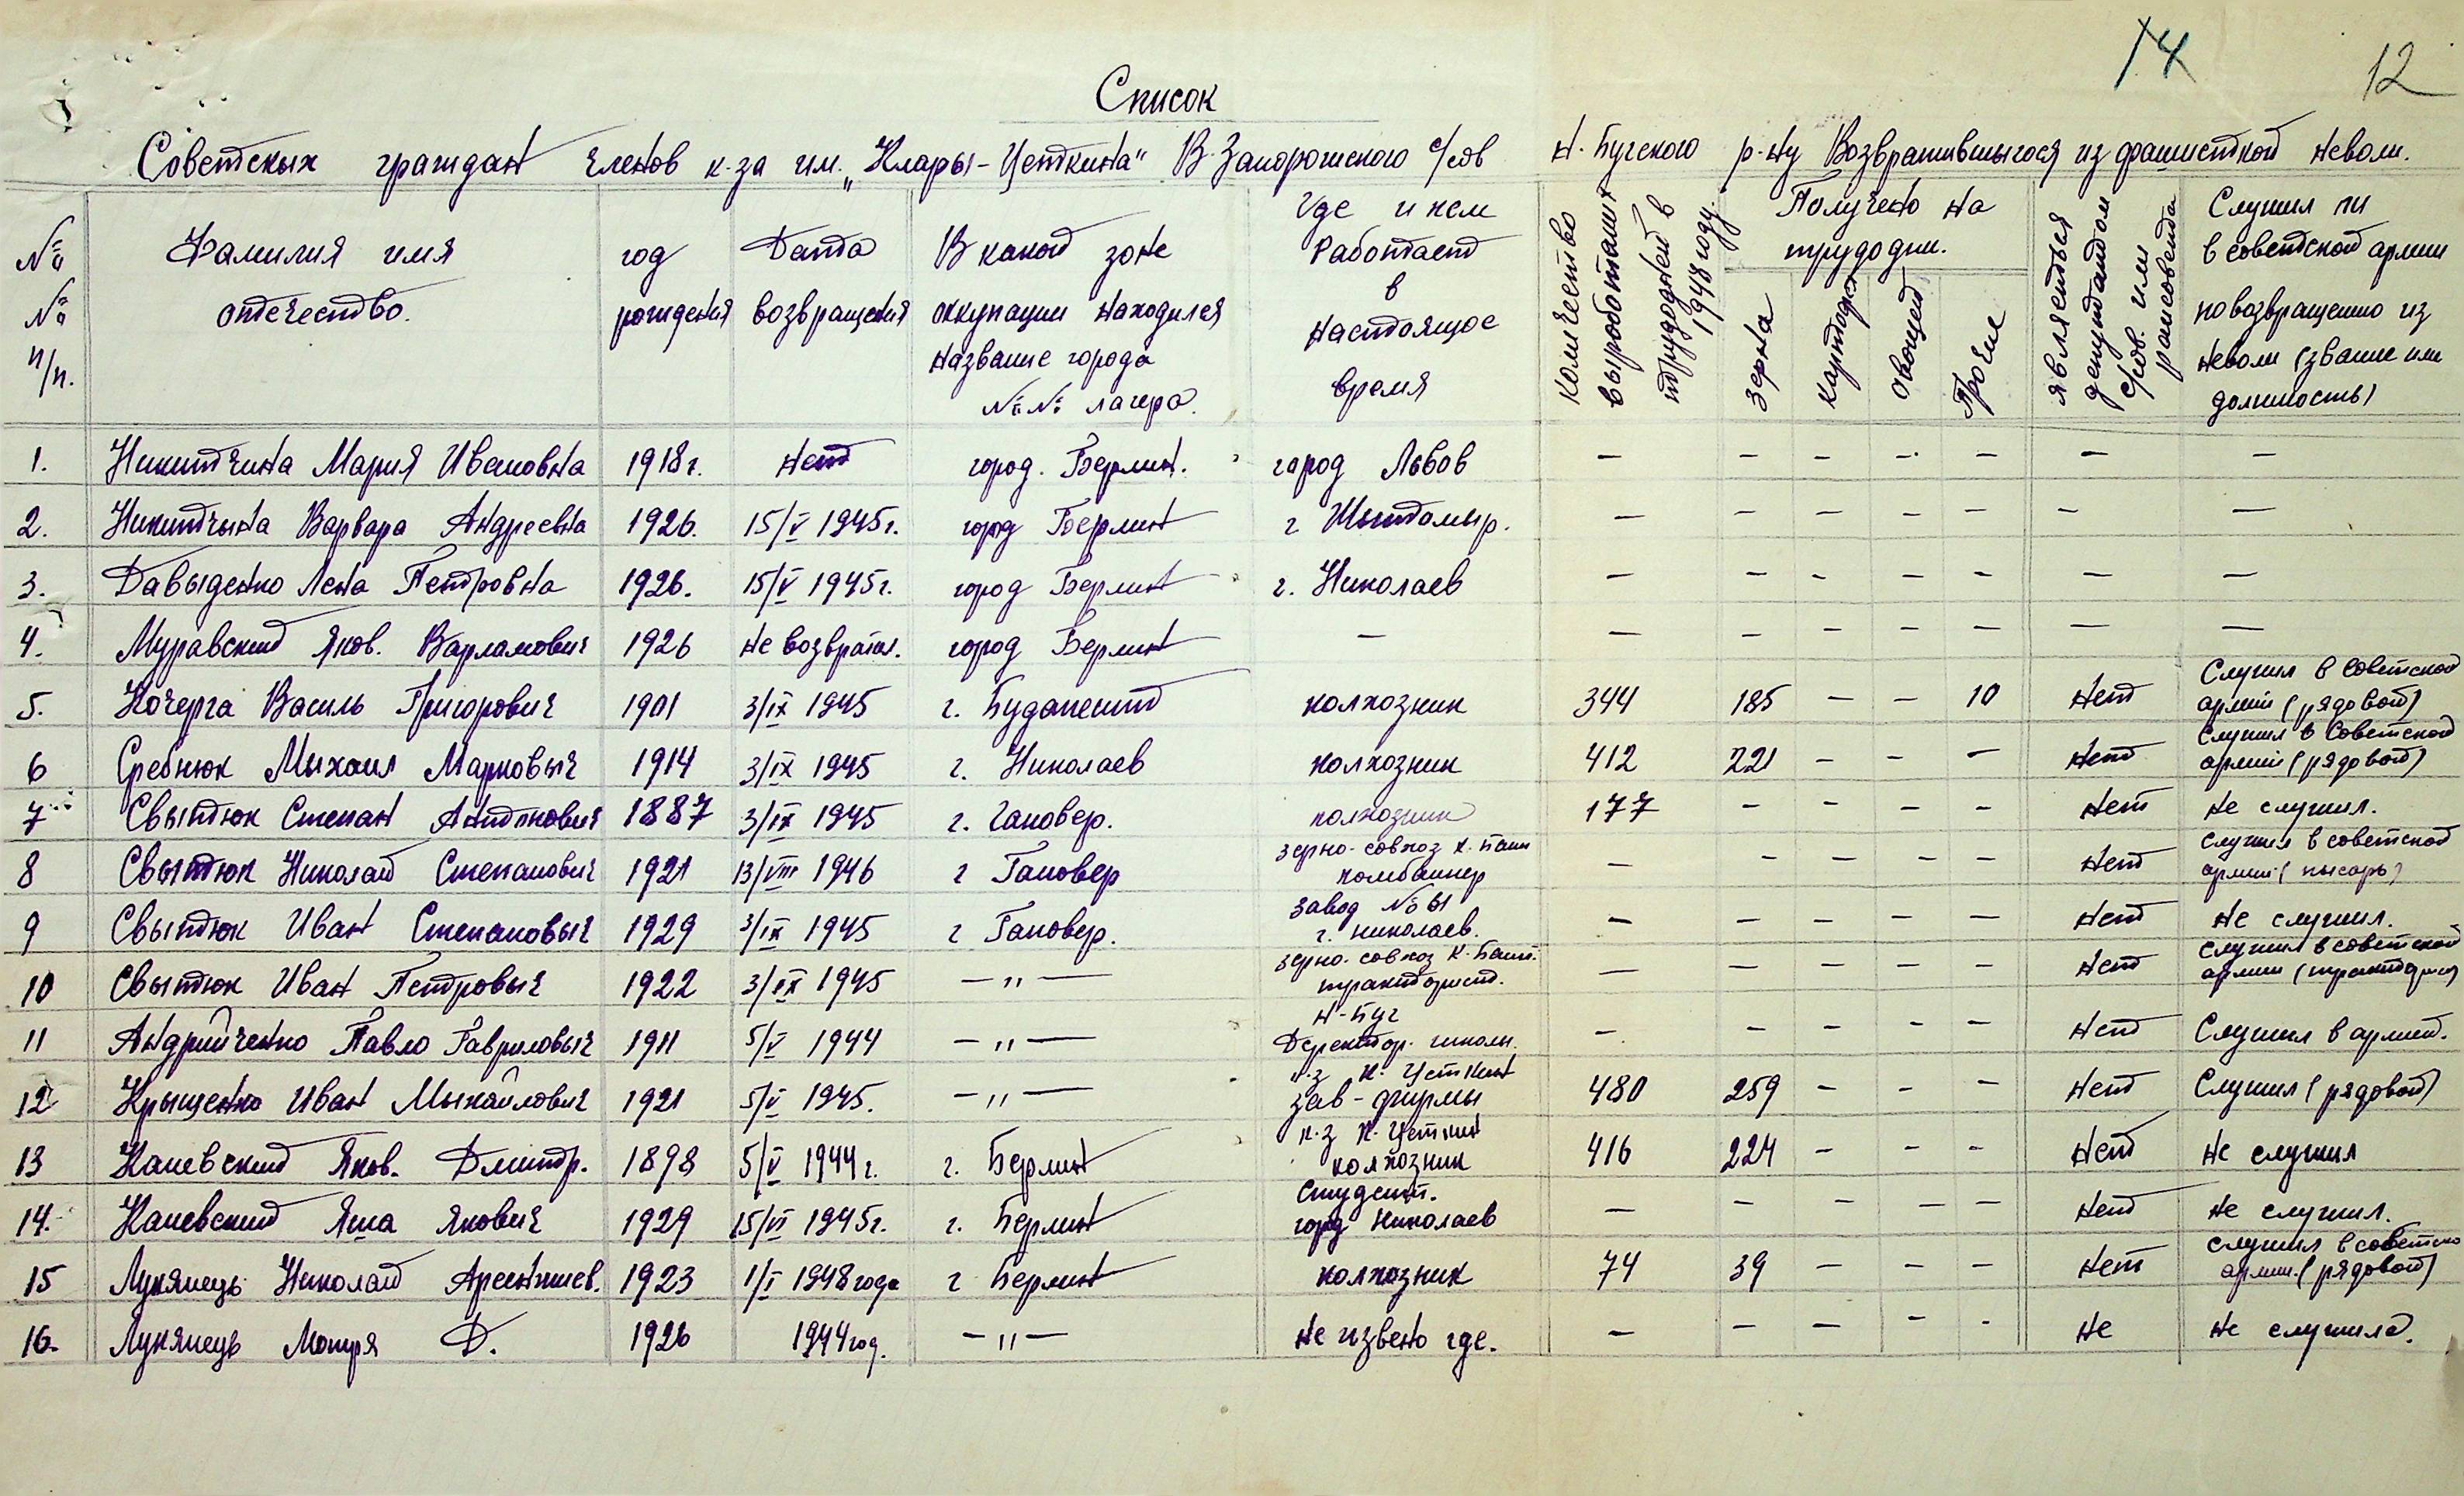 14 12
Список
Советскых граждан членов к-за им. „Клары-Цеткина" В. Запорожского с/сов Н. Бугского р-ну Возвратившыгося из фашисткой неволи.
№№ п/п. | Фамилия имя отечество. | год рождения | Дата возвращения | В какой зоне оккупации находился название города №№ лагера. | Где и кем работает в настоящое время | Количество выроботаных трудодней в 1948 году. | Получено на трудодни. | зерна | картофе | овощей | Прочие | является депутатом с/сов. или райсовета | Служил ли в советской армии по возвращению из неволи (звание или должность)
1. Никитчина Мария Ивановна | 1918 г. | нет | город. Берлин. | город Львов | — | — | — | — | — | — | —
2. Никитчына Варвара Андреевна | 1926. | 15/V 1945 г. | город Берлин | г Жытомыр. | — | — | — | — | — | — | —
3. Давыденко Лена Петровна | 1926. | 15/V 1945 г. | город Берлин | г. Николаев | — | — | — | — | — | — | —
4. Муравский Яков. Варламович | 1926 | не возвратил. | город Берлин | — | — | — | — | — | — | — | —
5. Кочерга Василь Григорович | 1901 | 3/IX 1945 | г. Будапешт | колхозник | 344 | 185 | — | — | 10 | Нет | Служил в Советской армии (рядовой)
6 Сребнюк Мыхаил Марковыч | 1914 | 3/IX 1945 | г. Николаев | колхозник | 412 | 221 | — | — | — | Нет | Служил в Советской армии (рядовой)
7 Свытюк Степан Антонович | 1887 | 3/IX 1945 | г. Гановер. | колхозник | 177 | — | — | — | — | Нет | не служил.
8 Свытюк Николай Степанович | 1921 | 13/VIII 1946 | г Гановер | зерно-совхоз К. Башт комбайнер | — | — | — | — | — | Нет | Служил в советской армии (пысарь)
9 Свытюк Иван Степановыч | 1929 | 3/IX 1945 | г Гановер. | завод № 61 г. Николаев. | — | — | — | — | — | Нет | Не служил.
10 Свытюк Иван Петровыч | 1922 | 3/IX 1945 | — " — | зерно-совхоз К. Башт. тракторист. | — | — | — | — | — | Нет | Служил в советской армии (тракторист)
11 Андрийченко Павло Гавриловыч | 1911 | 5/V 1944 | — " — | Н-Буг Деректор. школы. | — | — | — | — | — | Нет | Служил в армий.
12 Крыщенко Иван Мыхайлович | 1921 | 5/V 1945. | — " — | к.з К. Цеткин зав-фирмы | 480 | 259 | — | — | — | Нет | Служил (рядовой)
13 Каневский Яков. Дмитр. | 1898 | 5/V 1944 г. | г. Берлин | к.з К. Цеткин колхозник | 416 | 224 | — | — | — | Нет | не служил
14. Каневский Яша Якович | 1929 | 15/VI 1945 г. | г. Берлин | Студент. город Николаев | — | — | — | — | — | Нет | не служил.
15 Лукянець Николай Арсентиев. | 1923 | 1/I 1948 года | г Берлин | колхозник | 74 | 39 | — | — | — | Нет | служил в советско армии. (рядовой)
16. Лукянець Мотря Д. | 1926 | 1944 год. | — " — | не извено где. | — | — | — | — | - | не | не служила.